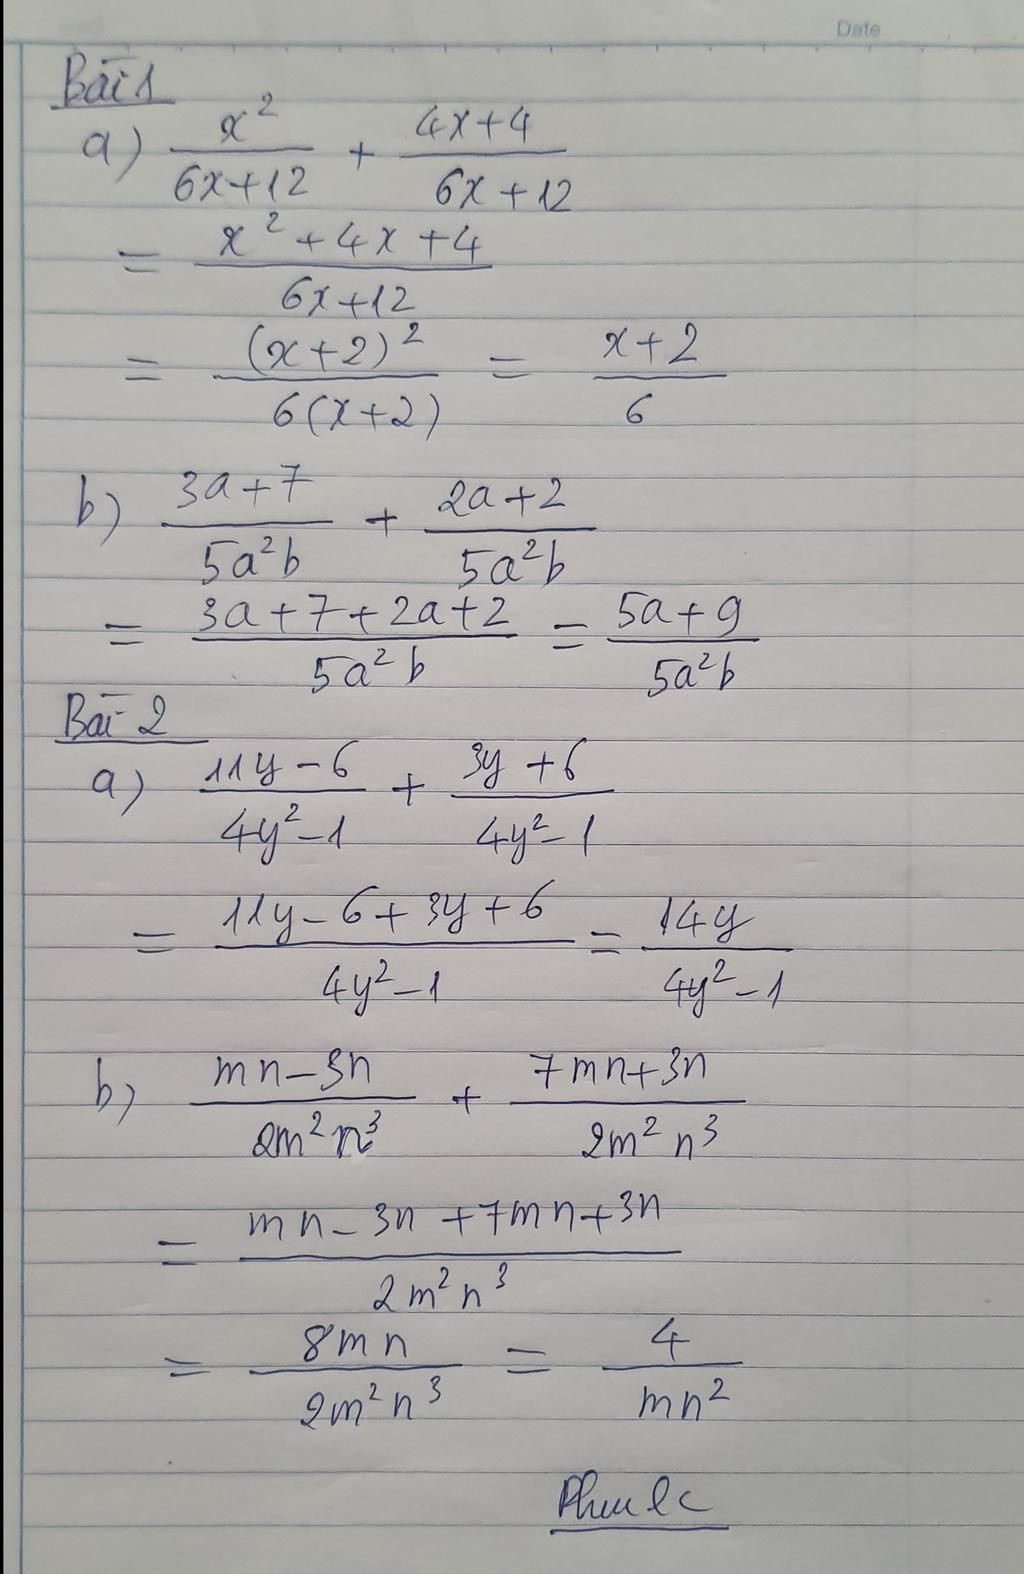 Date
Bài 1
a) x²/(6x+12) + (4x+4)/(6x+12)
= (x²+4x+4)/(6x+12)
= (x+2)²/(6(x+2)) = (x+2)/6
b) (3a+7)/(5a²b) + (2a+2)/(5a²b)
= (3a+7+2a+2)/(5a²b) = (5a+9)/(5a²b)
Bài 2
a) (11y-6)/(4y²-1) + (3y+6)/(4y²-1)
= (11y-6+3y+6)/(4y²-1) = 14y/(4y²-1)
b) (mn-3n)/(2m²n³) + (7mn+3n)/(2m²n³)
= (mn-3n+7mn+3n)/(2m²n³)
= 8mn/(2m²n³) = 4/(mn²)